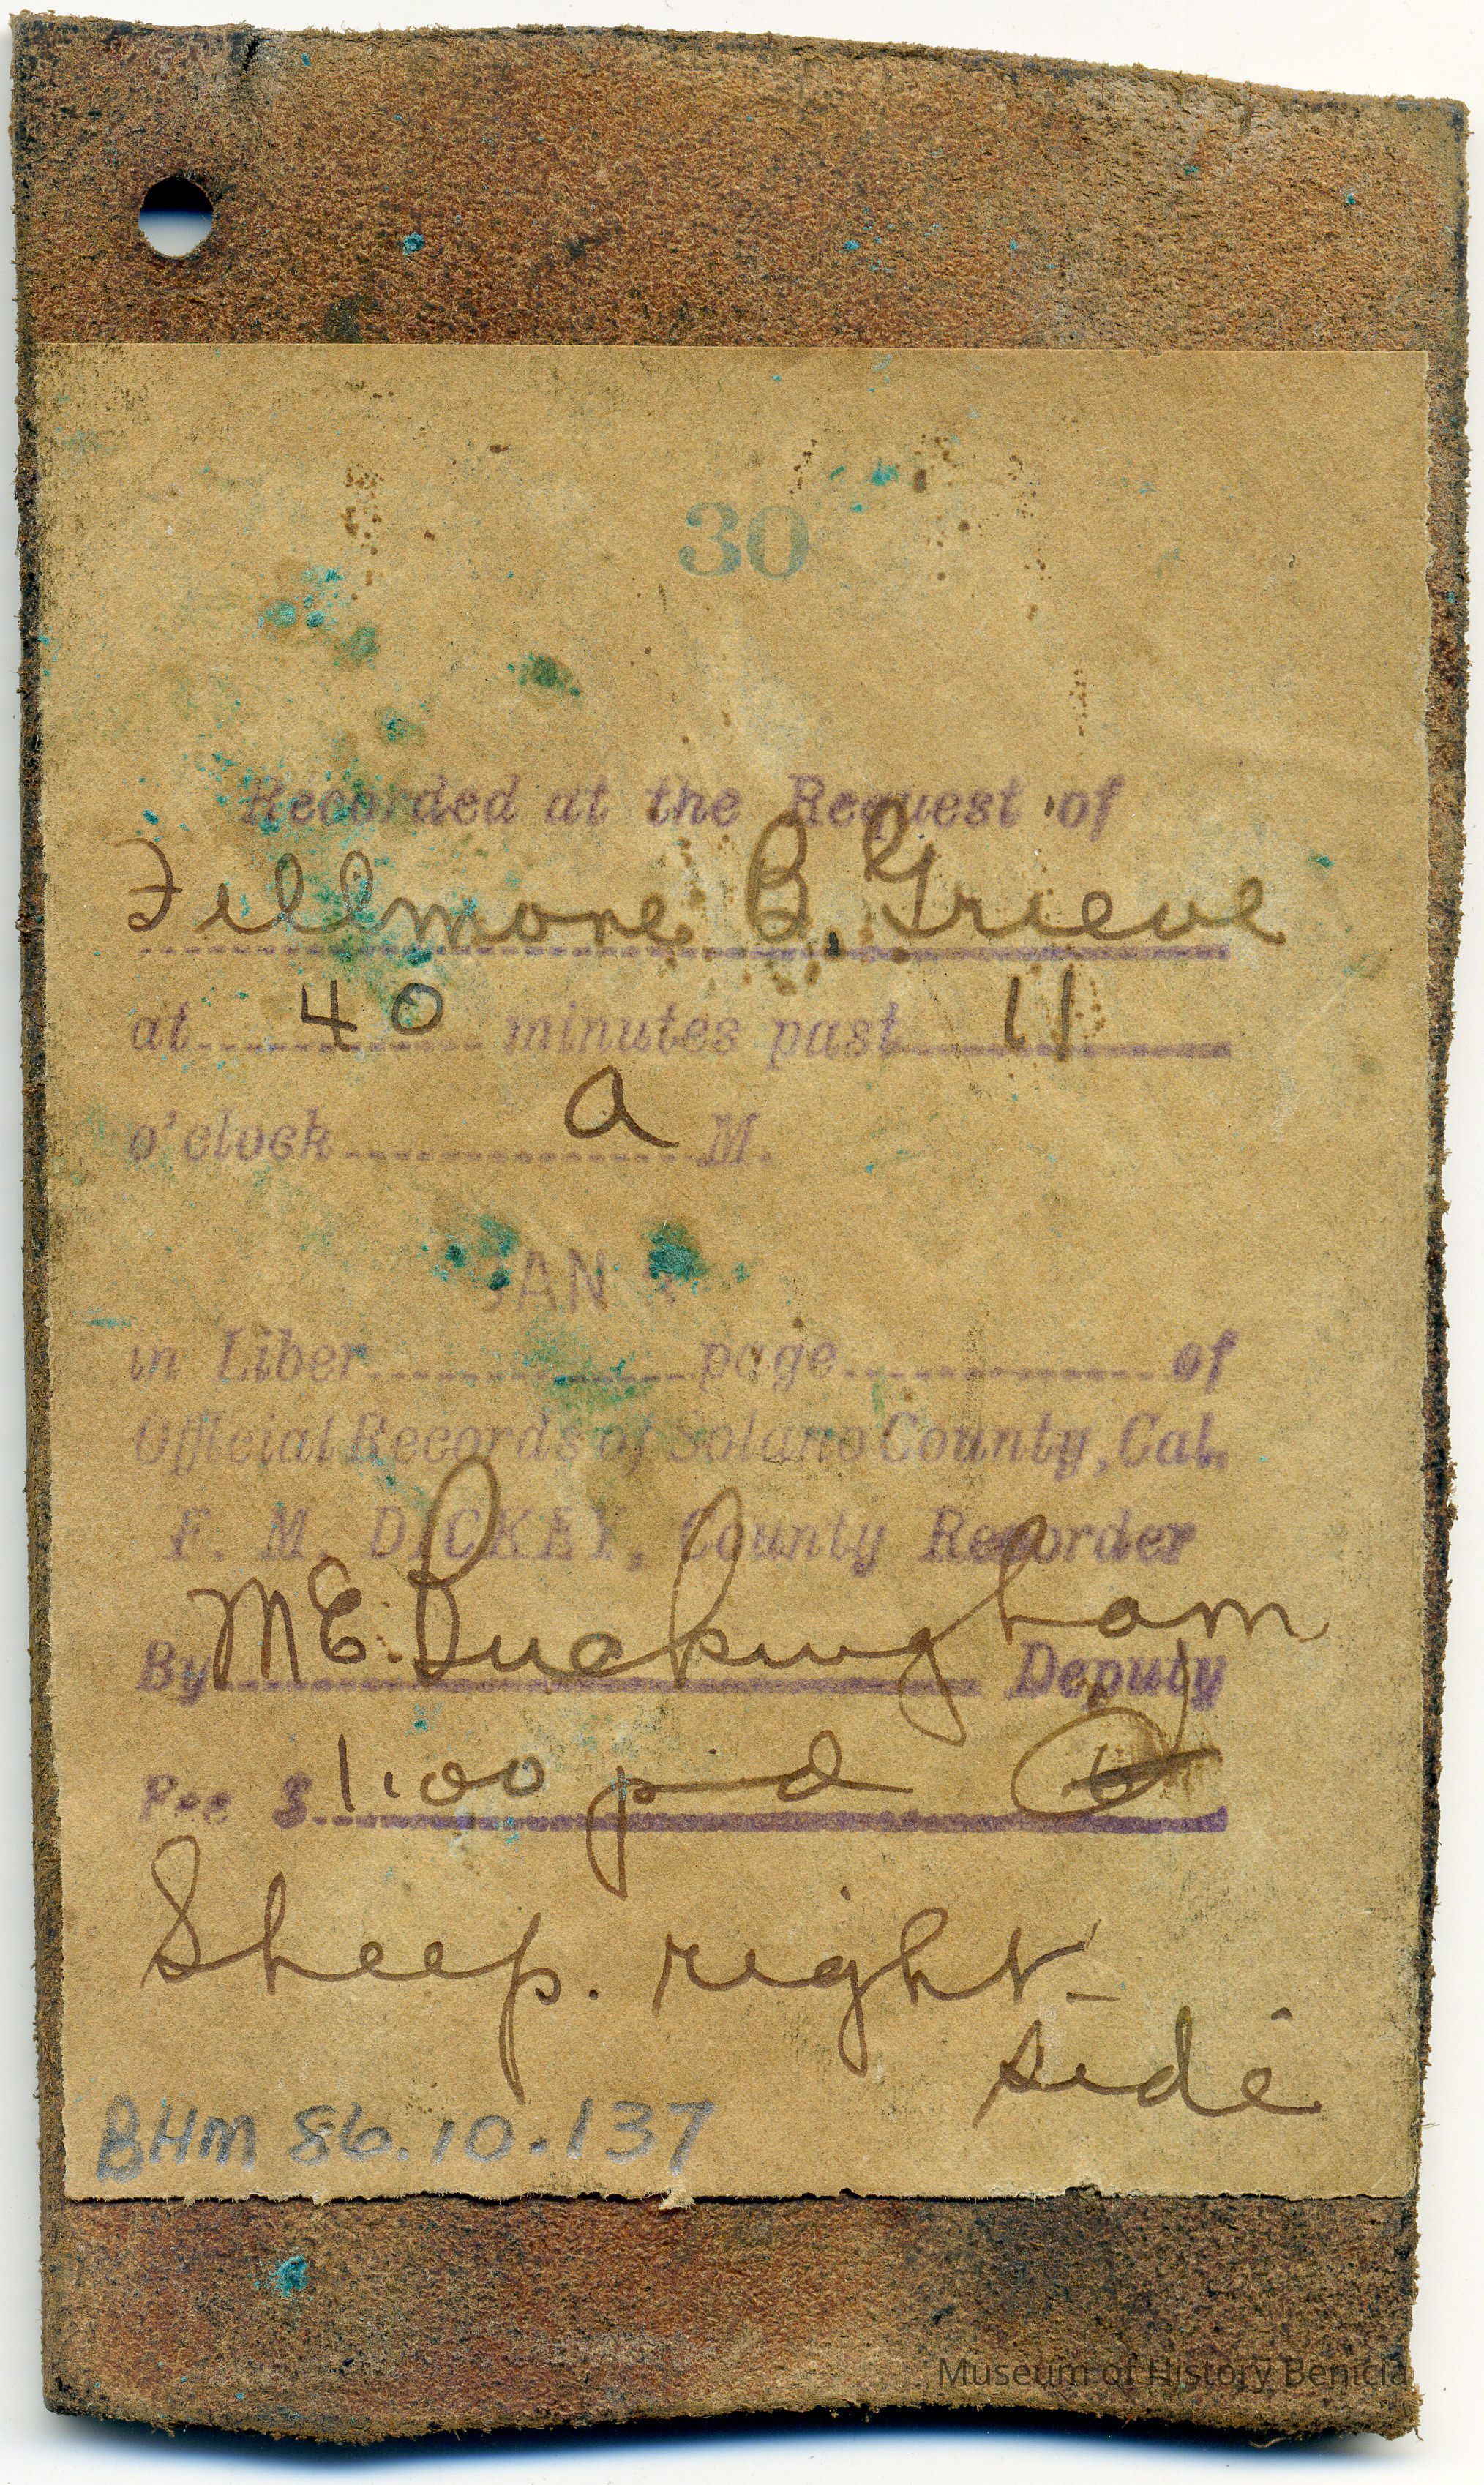 30
Recorded at the Request of
Fillmore B. Grieve
at 40 minutes past 11
o'clock a M.
JAN
in Liber page of
Official Records of Solano County, Cal.
F. M. DICKEY, County Recorder
By M E. Buckingham Deputy
Fee $ 1.00 pd
Sheep. right-
side
BHM 86.10.137
Museum of History Benicia